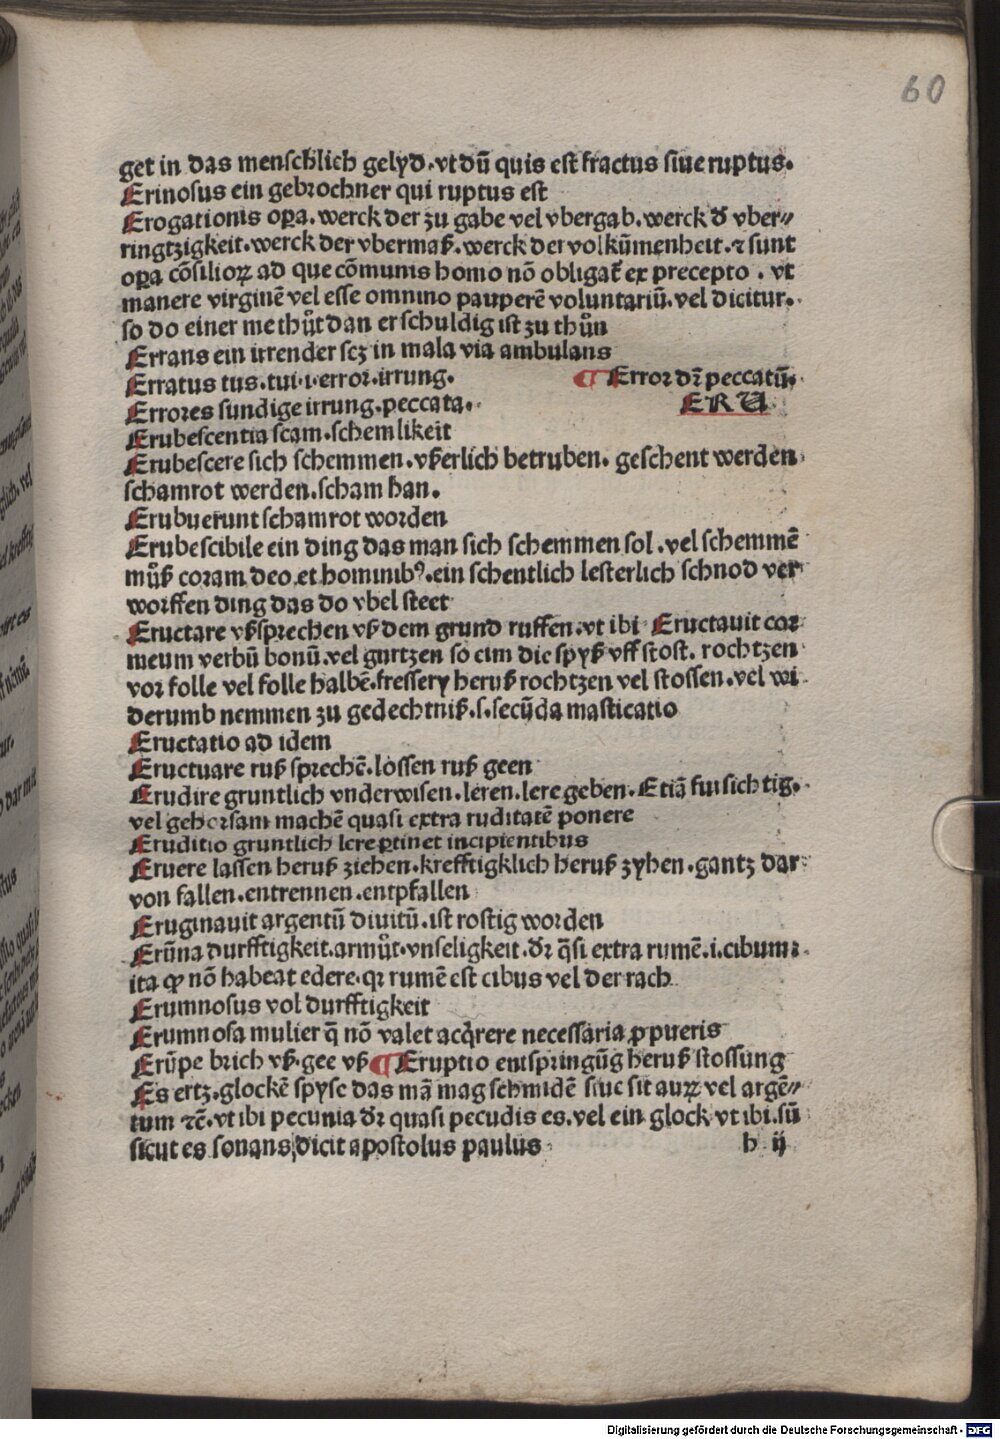 60
get in das menschlich gelyd.vt dū quis est fractus siue ruptus.
Erinosus ein gebrochner qui ruptus est
Erogationis oꝑa.werck der zu gabe vel vbergab.werck ď vber⸗
ringtzigkeit.werck der vbermaß.werck der volkūmenheit.⁊ sunt
oꝑa cōsilioꝝ ad que cōmunis homo nō obligat̄ ex precepto.vt
manere virginē vel esse omnino pauperē voluntariū.vel dicitur.
so do einer me thůt dan er schuldig ist zu thůn
Errans ein irrender scz in mala via ambulans
Erratus tus.tui.i.error.irrung. ¶Error dꝛ̄ peccatū.
Errores sundige irrung.peccata. ERU
Erubescentia scam.schemlikeit
Erubescere sich schemmen.vßerlich betruben.geschent werden
schamrot werden.scham han.
Erubuerunt schamrot worden
Erubescibile ein ding das man sich schemmen sol.vel schemmē
můß coram deo.et hominibꝰ.ein schentlich lesterlich schnod ver
worffen ding das do vbel steet
Eructare vßsprechen vß dem grund ruffen.vt ibi Eructauit cor
meum verbū bonū.vel gurtzen so eim die spyß vff stost.rochtzen
vor folle vel folle halbē.fressery heruß rochtzen vel stossen.vel wi
derumb nemmen zu gedechtniß.s.secūda masticatio
Eructatio ad idem
Eructuare ruß sprechē.lossen ruß geen
Erudire gruntlich vnderwisen.leren.lere geben.Etiā fursichtig.
vel gehorsam machē quasi extra ruditatē ponere
Eruditio gruntlich lere ꝑtinet incipientibus
Eruere lassen heruß ziehen.krefftigklich heruß zyhen.gantz dar
von fallen.entrennen.entpfallen
Eruginauit argentū diuitū.ist rostig worden
Erūna durfftigkeit.armůt.vnseligkeit.dꝛ̄ q̄si extra rumē.i.cibum:
ita ꝙ nō habeat edere.qꝛ rumē est cibus vel der rach
Erumnosus vol durfftigkeit
Erumnosa mulier q̄ nō valet acq̄rere necessaria ꝓ pueris
Erūpe brich vß.gee vß ¶Eruptio entspringūg heruß stossung
Es ertz.glockē spyse das mā mag schmidē siue sit auꝝ vel argē⸗
tum ⁊c̄.vt ibi pecunia dꝛ̄ quasi pecudis es.vel ein glock vt ibi.sū
sicut es sonans,dicit apostolus paulus h ij
Digitalisierung gefördert durch die Deutsche Forschungsgemeinschaft - DFG